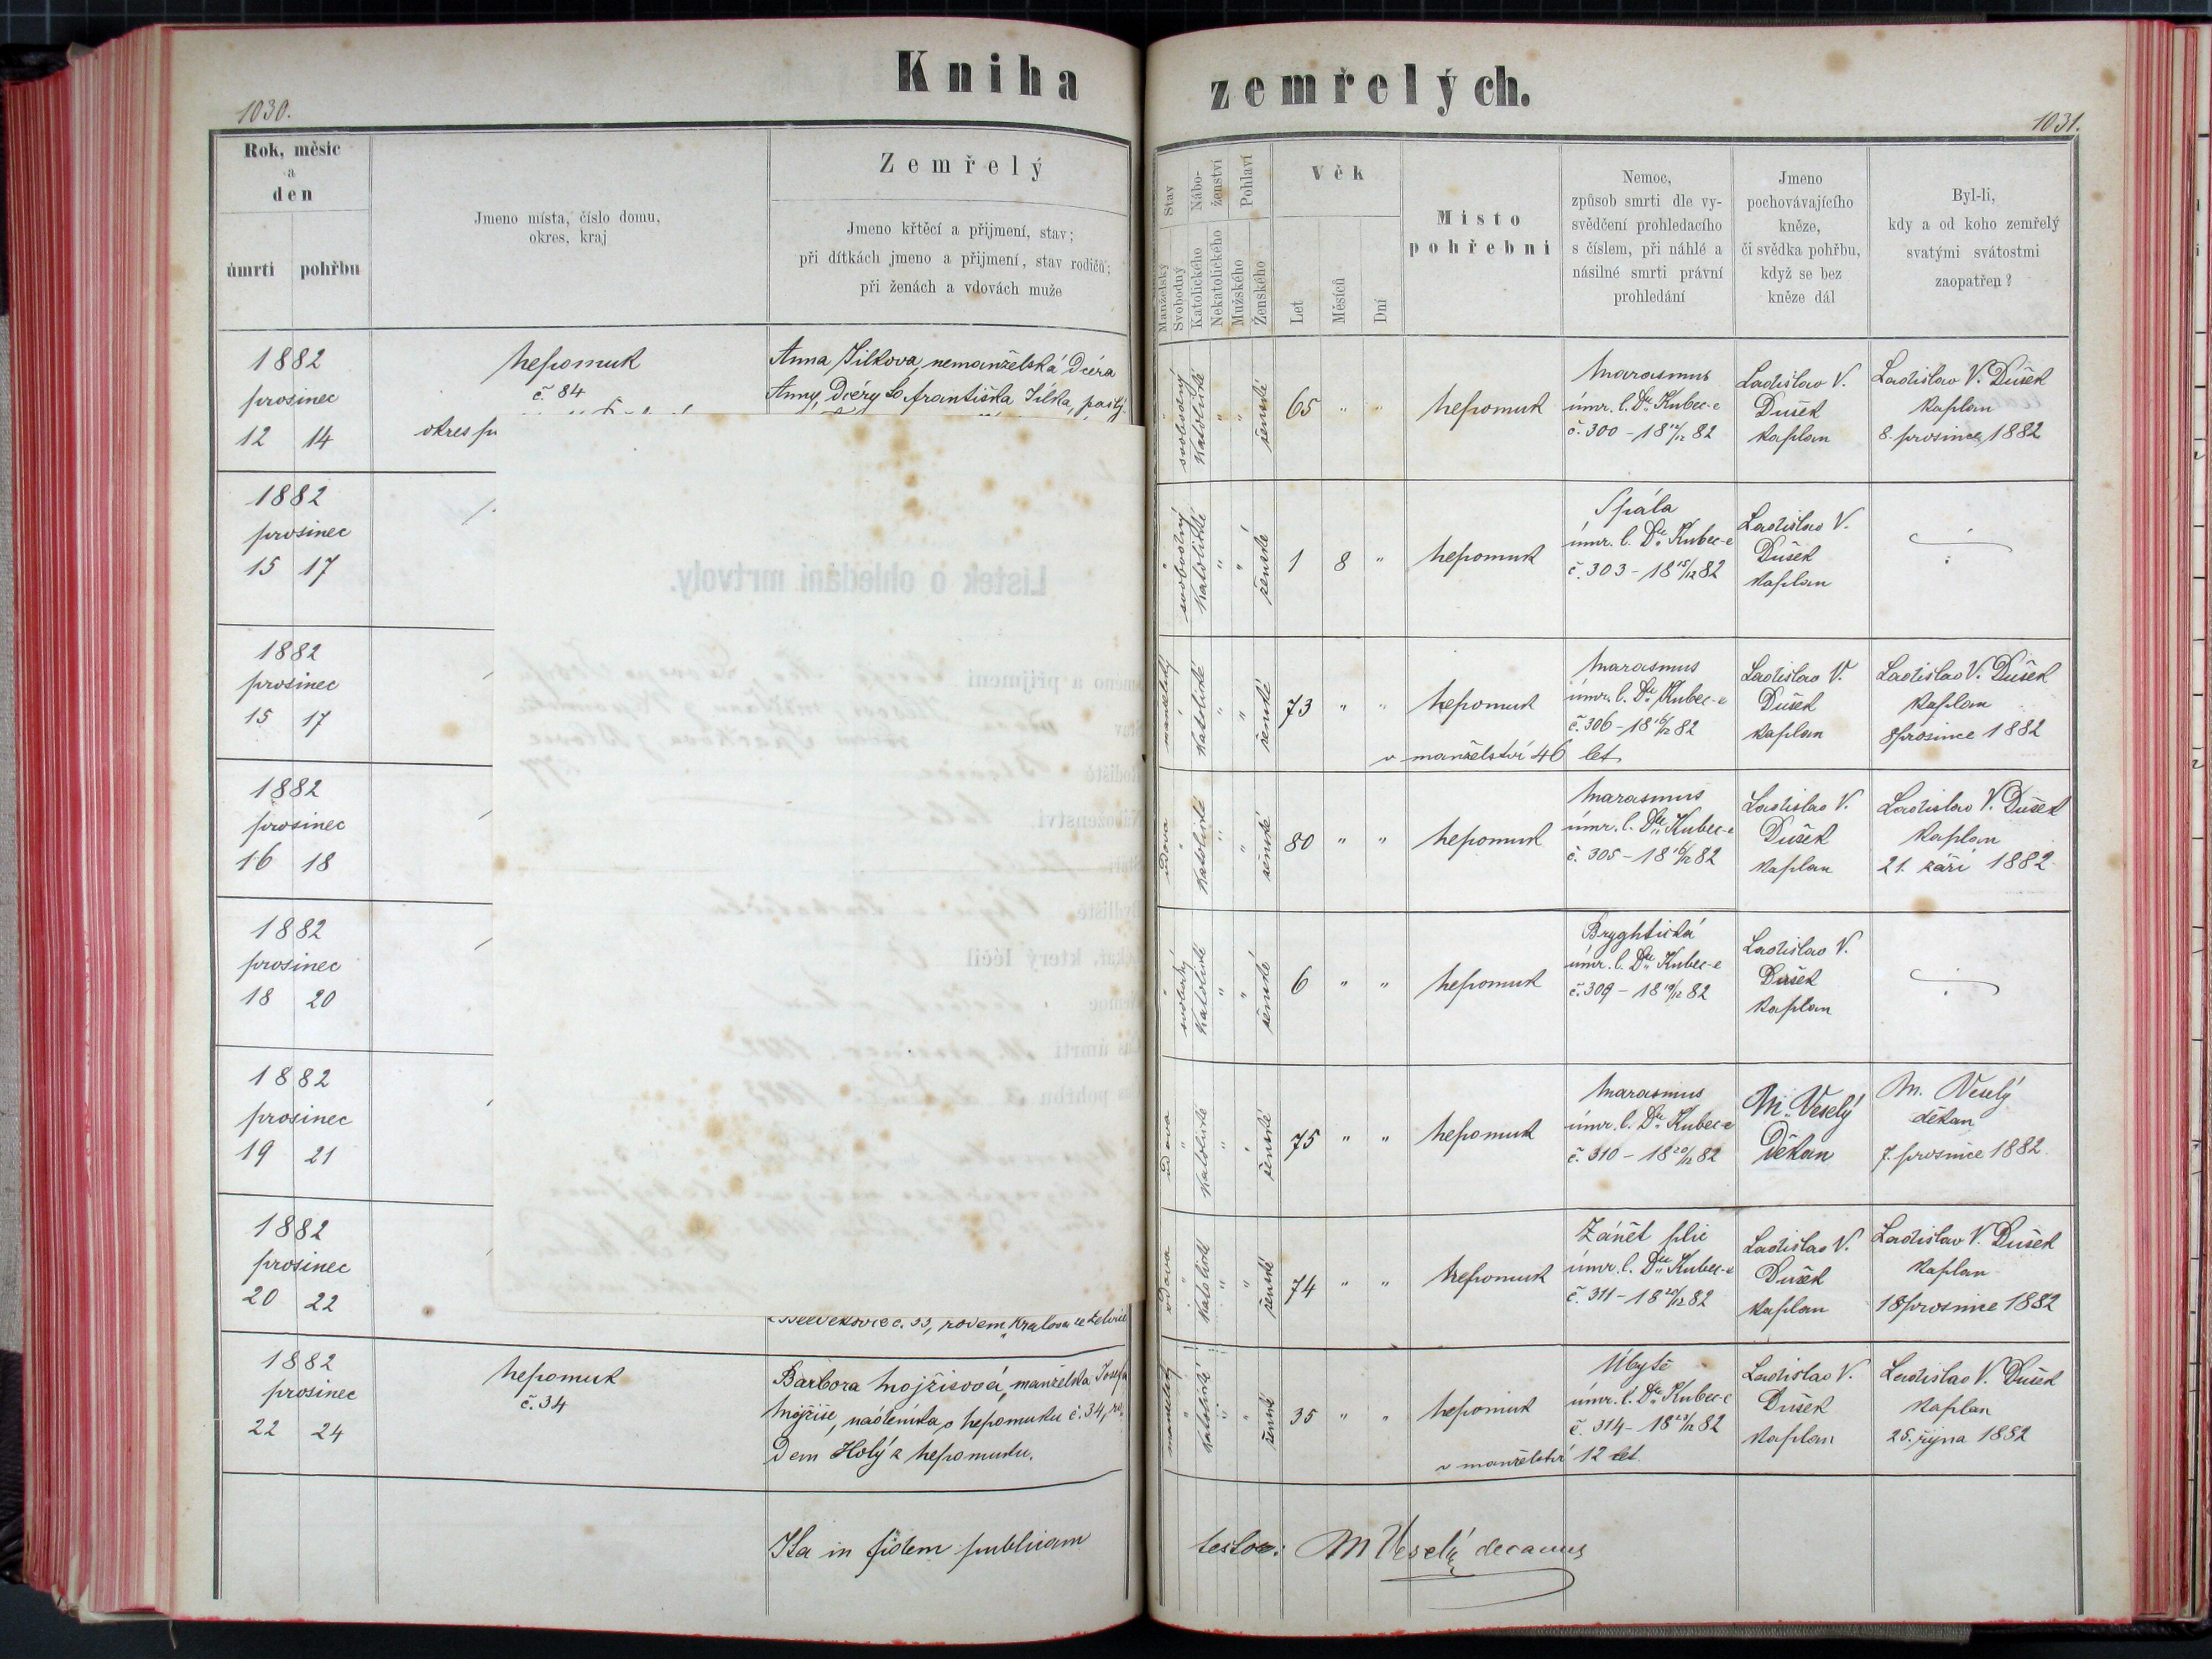 Kniha zemřelých.
1030.
1031.
Rok, měsíc
a
den
úmrtí pohřbu
Jmeno místa, číslo domu,
okres, kraj
Zemřelý
Jmeno křtěcí a přijmení, stav;
při dítkách jmeno a přijmení, stav rodičů;
při ženách a vdovách muže
Stav
Manželský
Svobodný
Nábo-
ženství
Katolického
Nekatolického
Pohlaví
Mužského
Ženského
Věk
Let
Měsíců
Dní
Místo
pohřební
Nemoc,
způsob smrti dle vy-
svědčení prohledacího
s číslem, při náhlé a
násilné smrti právní
prohledání
Jmeno
pochovávajícího
kněze,
či svědka pohřbu,
když se bez
kněze dál
Byl-li,
kdy a od koho zemřelý
svatými svátostmi
zaopatřen?
1882
prosinec
12 14
Nepomuk
č 84
okres
Anna Jílkova, nemanželská dcera
Anny, dcery Františka Jílka,
svobodný
katolické
ženské
65 " "
Nepomuk
Marasmus
úmr. l. Dr. Kubec-e
č. 300 - 18 12/12 82
Ladislav V.
Dušek
kaplan
Ladislav V. Dušek
kaplan
8. prosince 1882
1882
prosinec
15 17
svobodný
katolické
ženské
1 8 "
Nepomuk
Spála
úmr. l. Dr. Kubec-e
č. 303 - 18 15/12 82
Ladislav V.
Dušek
kaplan
1882
prosinec
15 17
manželský
katolické
ženské
73 " "
Nepomuk
Marasmus
úmr. l. Dr. Kubec-e
č. 306 - 18 16/12 82
v manželství 46 let
Ladislav V.
Dušek
kaplan
Ladislav V. Dušek
kaplan
8 prosince 1882
1882
prosinec
16 18
vdova
katolické
ženské
80 " "
Nepomuk
Marasmus
úmr. l. Dr. Kubec-e
č. 305 - 18 16/12 82
Ladislav V.
Dušek
kaplan
Ladislav V. Dušek
kaplan
21. září 1882
1882
prosinec
18 20
svobodný
katolické
ženské
6 " "
Nepomuk
Bryghtická
úmr. l. Dr. Kubec-e
č. 309 - 18 19/12 82
Ladislav V.
Dušek
kaplan
1882
prosinec
19 21
vdova
katolické
ženské
75 " "
Nepomuk
Marasmus
úmr. l. Dr. Kubec-e
č. 310 - 18 20/12 82
M. Veselý
Děkan
M. Veselý
děkan
7. prosince 1882
1882
prosinec
20 22
č. 33, rodem Králova
vdova
katolické
ženské
74 " "
Nepomuk
Zánět plic
úmr. l. Dr. Kubec-e
č. 311 - 18 20/12 82
Ladislav V.
Dušek
kaplan
Ladislav V. Dušek
kaplan
18 prosince 1882
1882
prosinec
22 24
Nepomuk
č. 34
Barbora Mojžísová, manželka Josefa
Mojžíše, nádeníka z Nepomuku č. 34, ro-
dem Holý z Nepomuku.
manželský
katolické
ženské
35 " "
Nepomuk
Úbytě
úmr. l. Dr. Kubec-e
č. 314 - 18 23/12 82
v manželství 12 let.
Ladislav V.
Dušek
kaplan
Ladislav V. Dušek
kaplan
25. října 1882
Ita in fidem publicam
testor: M Veselý decanus
Lístek o ohledání mrtvoly.